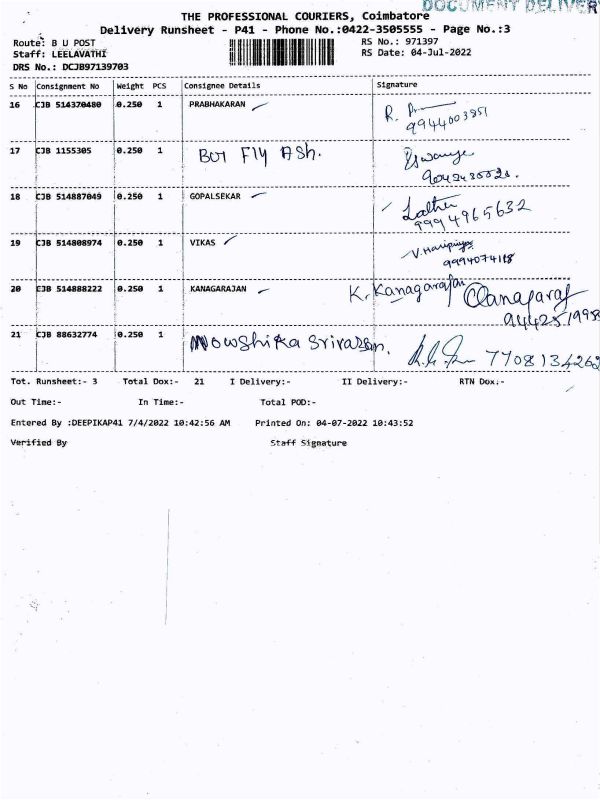 DOCUMENT DELIVERY
THE PROFESSIONAL COURIERS, Coimbatore
Delivery Runsheet - P41 - Phone No.:0422-3505555 - Page No.:3
Route: B U POST RS No.: 971397
Staff: LEELAVATHI RS Date: 04-Jul-2022
DRS No.: DCJB97139703
S No Consignment No Weight PCS Consignee Details Signature
16 CJB 514370480 0.250 1 PRABHAKARAN R.
9944003851
17 CJB 1155305 0.250 1 BUT Fly Ash.
18 CJB 514887049 0.250 1 GOPALSEKAR
9994965632
19 CJB 514808974 0.250 1 VIKAS V. Haripriya
9994074118
20 CJB 514888222 0.250 1 KANAGARAJAN K. Kanagarajan
21 CJB 88632774 0.250 1 Mowshika Srivarsan. 7708134262
Tot. Runsheet:- 3 Total Dox:- 21 I Delivery:- II Delivery:- RTN Dox:-
Out Time:- In Time:- Total POD:-
Entered By :DEEPIKAP41 7/4/2022 10:42:56 AM Printed On: 04-07-2022 10:43:52
Verified By Staff Signature